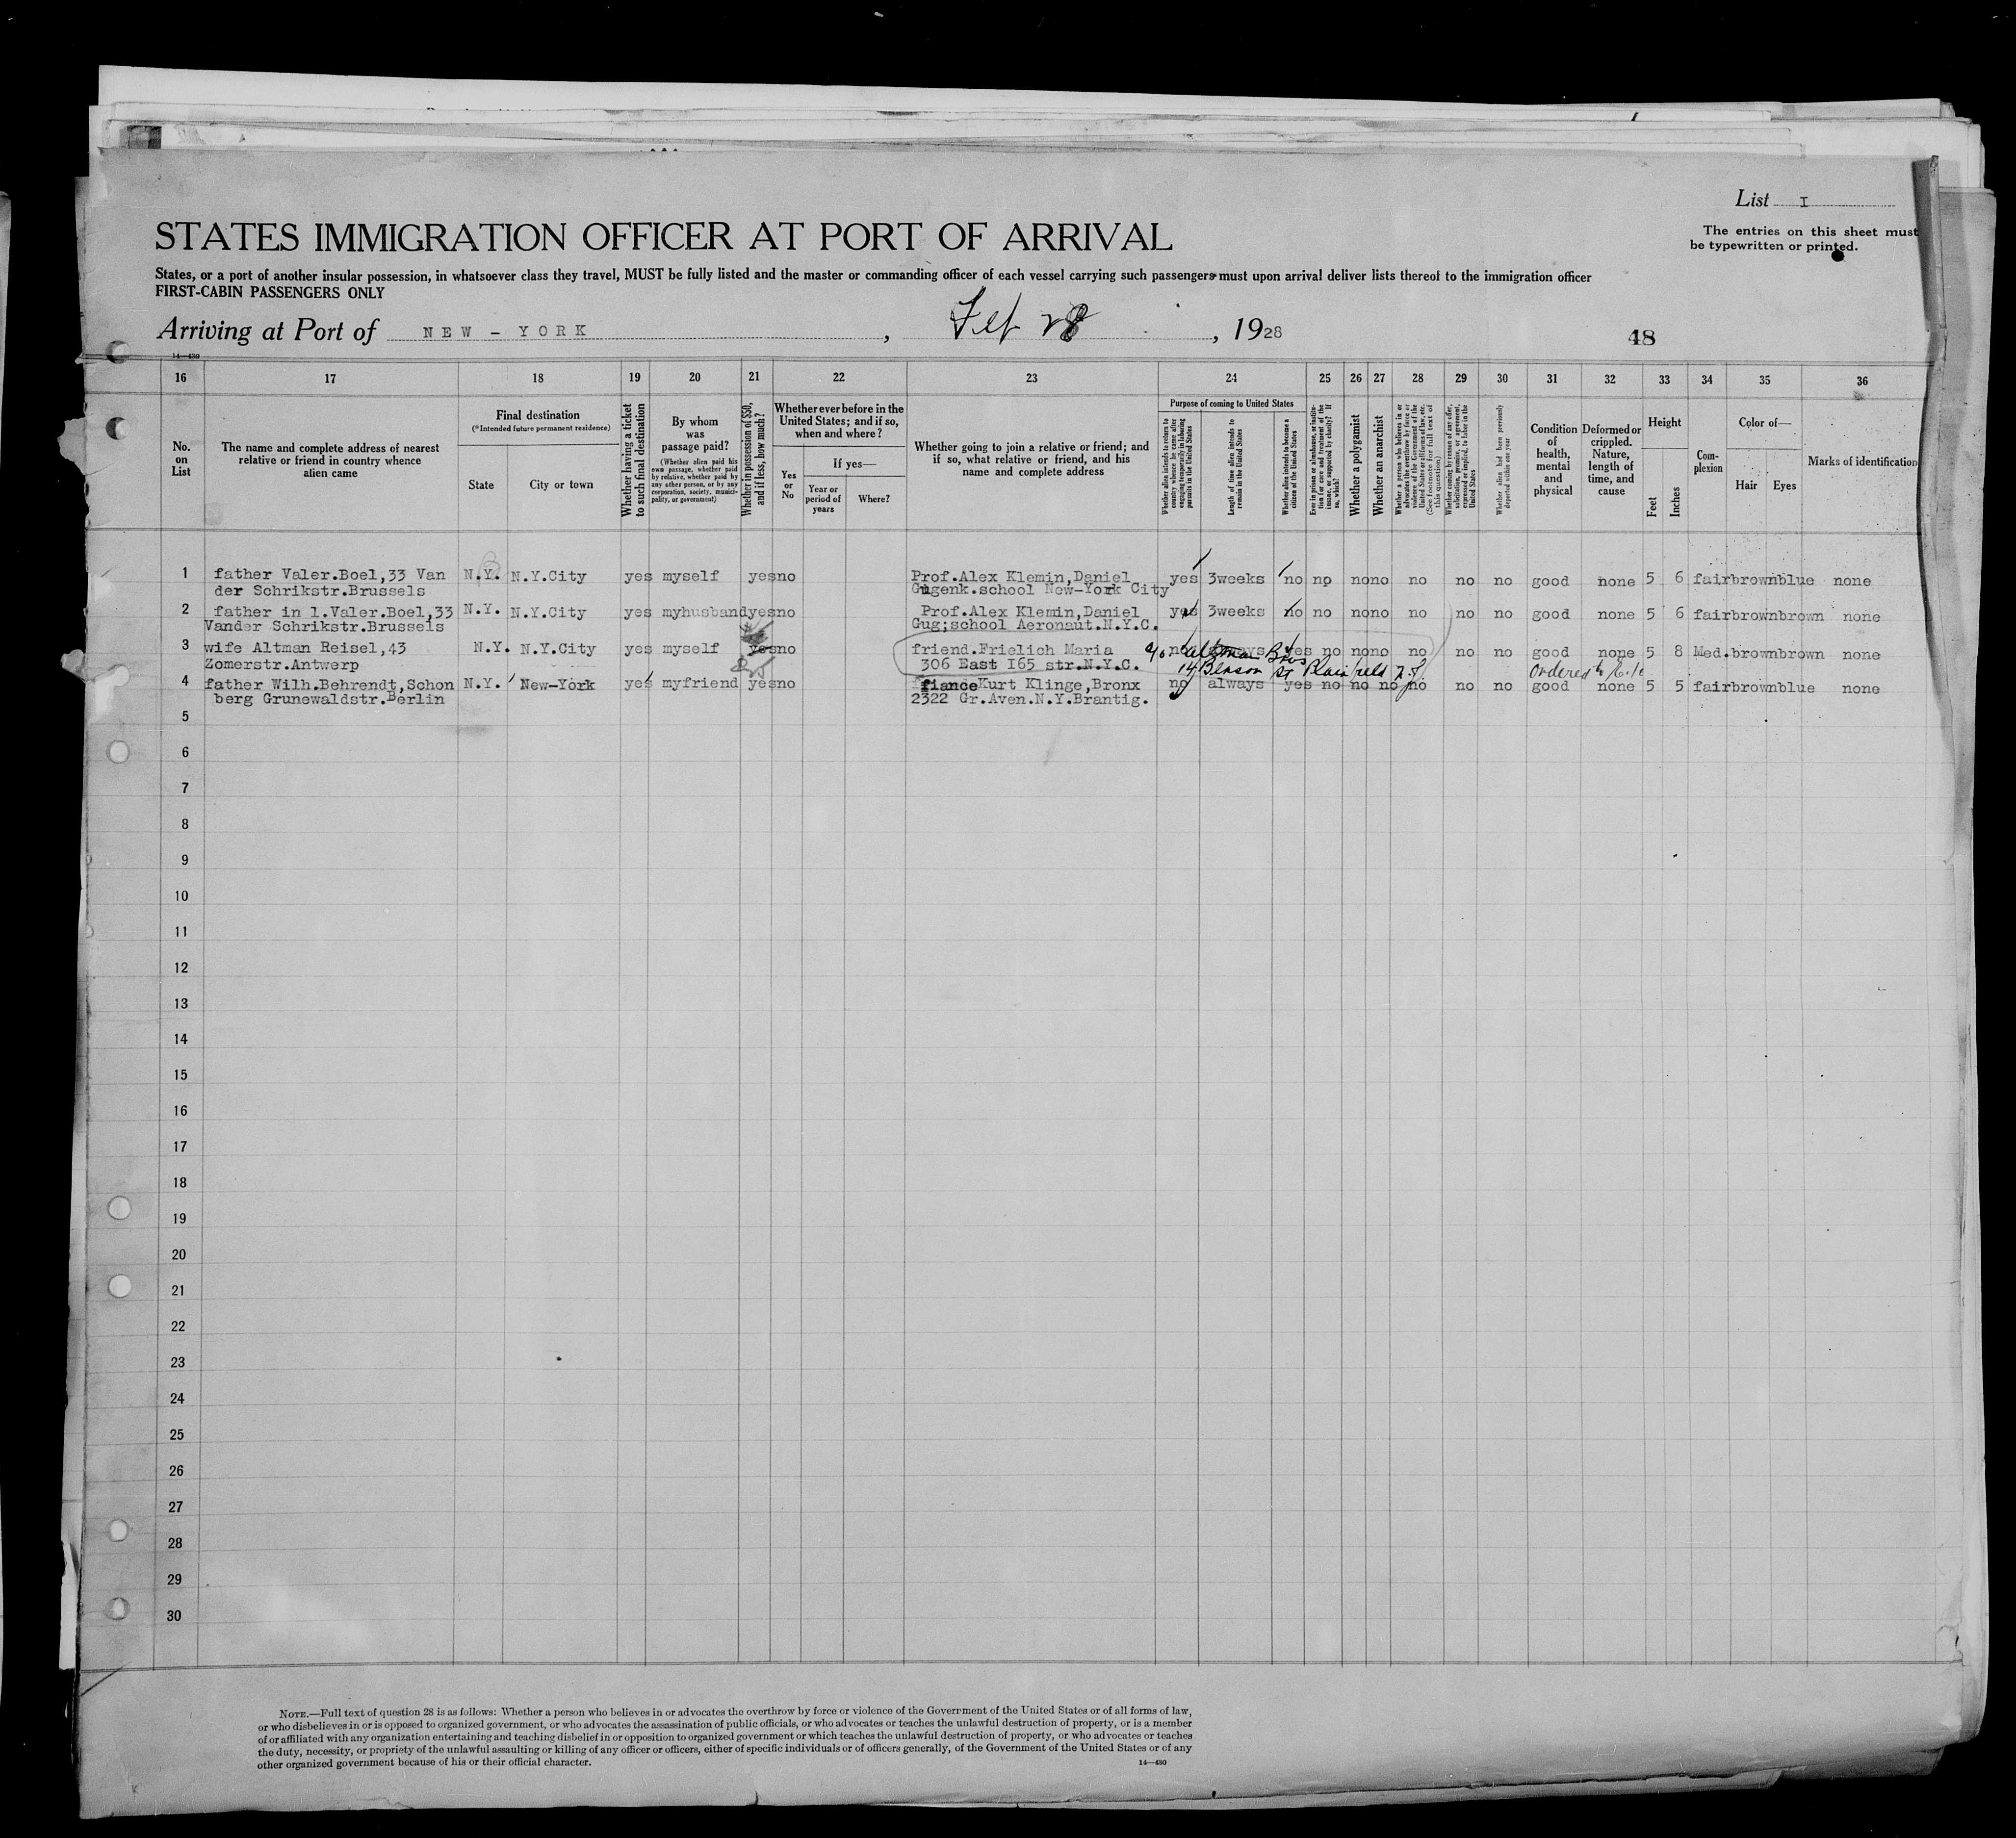 List I
STATES IMMIGRATION OFFICER AT PORT OF ARRIVAL
The entries on this sheet must
be typewritten or printed.
States, or a port of another insular possession, in whatsoever class they travel, MUST be fully listed and the master or commanding officer of each vessel carrying such passengers must upon arrival deliver lists thereof to the immigration officer
FIRST-CABIN PASSENGERS ONLY
Arriving at Port of NEW - YORK, Feb 28, 1928
48
14—430
16 17 18 19 20 21 22 23 24 25 26 27 28 29 30 31 32 33 34 35 36
No. on List
The name and complete address of nearest relative or friend in country whence alien came
Final destination
(*Intended future permanent residence)
State
City or town
Whether having a ticket to such final destination
By whom was passage paid?
(Whether alien paid his own passage, whether paid by relative, whether paid by any other person, or by any corporation, society, municipality, or government)
Whether in possession of $50, and if less, how much?
Whether ever before in the United States; and if so, when and where?
Yes or No
If yes—
Year or period of years
Where?
Whether going to join a relative or friend; and if so, what relative or friend, and his name and complete address
Purpose of coming to United States
Whether alien intends to return to country whence he came after engaging temporarily in laboring pursuits in the United States
Length of time alien intends to remain in the United States
Whether alien intends to become a citizen of the United States
Ever in prison or almshouse, or institution for care and treatment of the insane, or supported by charity? If so, which?
Whether a polygamist
Whether an anarchist
Whether a person who believes in or advocates the overthrow by force or violence of the Government of the United States or all forms of law, etc. (See footnote for full text of this question)
Whether coming by reason of any offer, solicitation, promise, or agreement, expressed or implied, to labor in the United States
Whether alien had been previously deported within one year
Condition of health, mental and physical
Deformed or crippled. Nature, length of time, and cause
Height
Feet
Inches
Complexion
Color of—
Hair
Eyes
Marks of identification
1 father Valer.Boel,33 Van N.Y. N.Y.City yes myself yes no Prof.Alex Klemin,Daniel yes 3weeks no no no no no no no good none 5 6 fair brown blue none
der Schrikstr.Brussels Gugenk.school New-York City
2 father in l.Valer.Boel,33 N.Y. N.Y.City yes myhusband yes no Prof.Alex Klemin,Daniel yes 3weeks no no no no no no no good none 5 6 fair brown brown none
Vander Schrikstr.Brussels Gug;school Aeronaut.N.Y.C.
3 wife Altman Reisel,43 N.Y. N.Y.City yes myself yes no friend.Frielich Maria no always yes no no no no no no good none 5 8 Med. brown brown none
Zomerstr.Antwerp 25 306 East I65 str.N.Y.C.
c/o Altman Bros
14 St Plainfield N.J.
Ordered
4 father Wilh.Behrendt,Schon N.Y. New-York yes myfriend yes no fiance Kurt Klinge,Bronx no always yes no no no no no no good none 5 5 fair brown blue none
berg Grunewaldstr.Berlin 2322 Gr.Aven.N.Y.Brantig.
5
6
7
8
9
10
11
12
13
14
15
16
17
18
19
20
21
22
23
24
25
26
27
28
29
30
NOTE.—Full text of question 28 is as follows: Whether a person who believes in or advocates the overthrow by force or violence of the Government of the United States or of all forms of law,
or who disbelieves in or is opposed to organized government, or who advocates the assassination of public officials, or who advocates or teaches the unlawful destruction of property, or is a member
of or affiliated with any organization entertaining and teaching disbelief in or opposition to organized government or which teaches the unlawful destruction of property, or who advocates or teaches
the duty, necessity, or propriety of the unlawful assaulting or killing of any officer or officers, either of specific individuals or of officers generally, of the Government of the United States or of any
other organized government because of his or their official character.
14—430